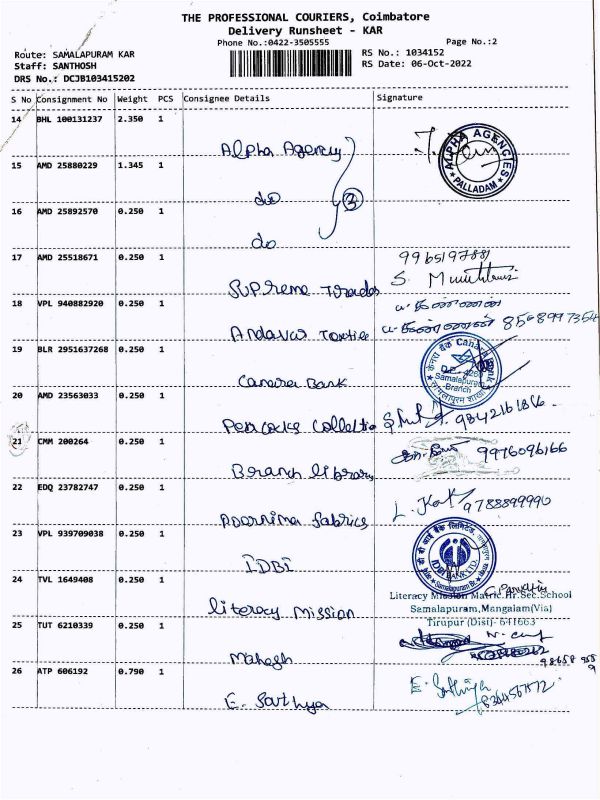 THE PROFESSIONAL COURIERS, Coimbatore
Delivery Runsheet - KAR
Phone No.:0422-3505555
Page No.:2
Route: SAMALAPURAM KAR
Staff: SANTHOSH
DRS No.: DCJB103415202
RS No.: 1034152
RS Date: 06-Oct-2022
S No Consignment No Weight PCS Consignee Details Signature
14 BHL 100131237 2.350 1 Alpha Agency
ALPHA AGENCIES PALLADAM
15 AMD 25880229 1.345 1 do
3
16 AMD 25892570 0.250 1 do
17 AMD 25518671 0.250 1 Supreme Traders
S.
18 VPL 940882920 0.250 1 Andavar Textile
19 BLR 2951637268 0.250 1 Canara Bank
केनरा बैंक Canara Bank
Samalapuram
Branch
20 AMD 23563033 0.250 1 Peacocks Collection 9842161886
21 CMM 200264 0.250 1 Branch library 9976096166
22 EDQ 23782747 0.250 1 Poornima fabrics 9788899990
23 VPL 939709038 0.250 1 IDBI
IDBI BANK LTD.
24 TVL 1649408 0.250 1 literacy mission
Literacy Mission Matric.Hr.Sec.School
Samalapuram,Mangalam(Via)
Tirupur (Dist)- 641663
25 TUT 6210339 0.250 1 Mahesh
26 ATP 606192 0.790 1 E. Sathya
E. Sathiya